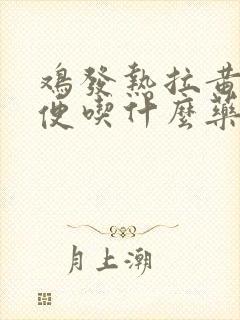 鸡發熱拉黃
便喫什麼藥
月上潮